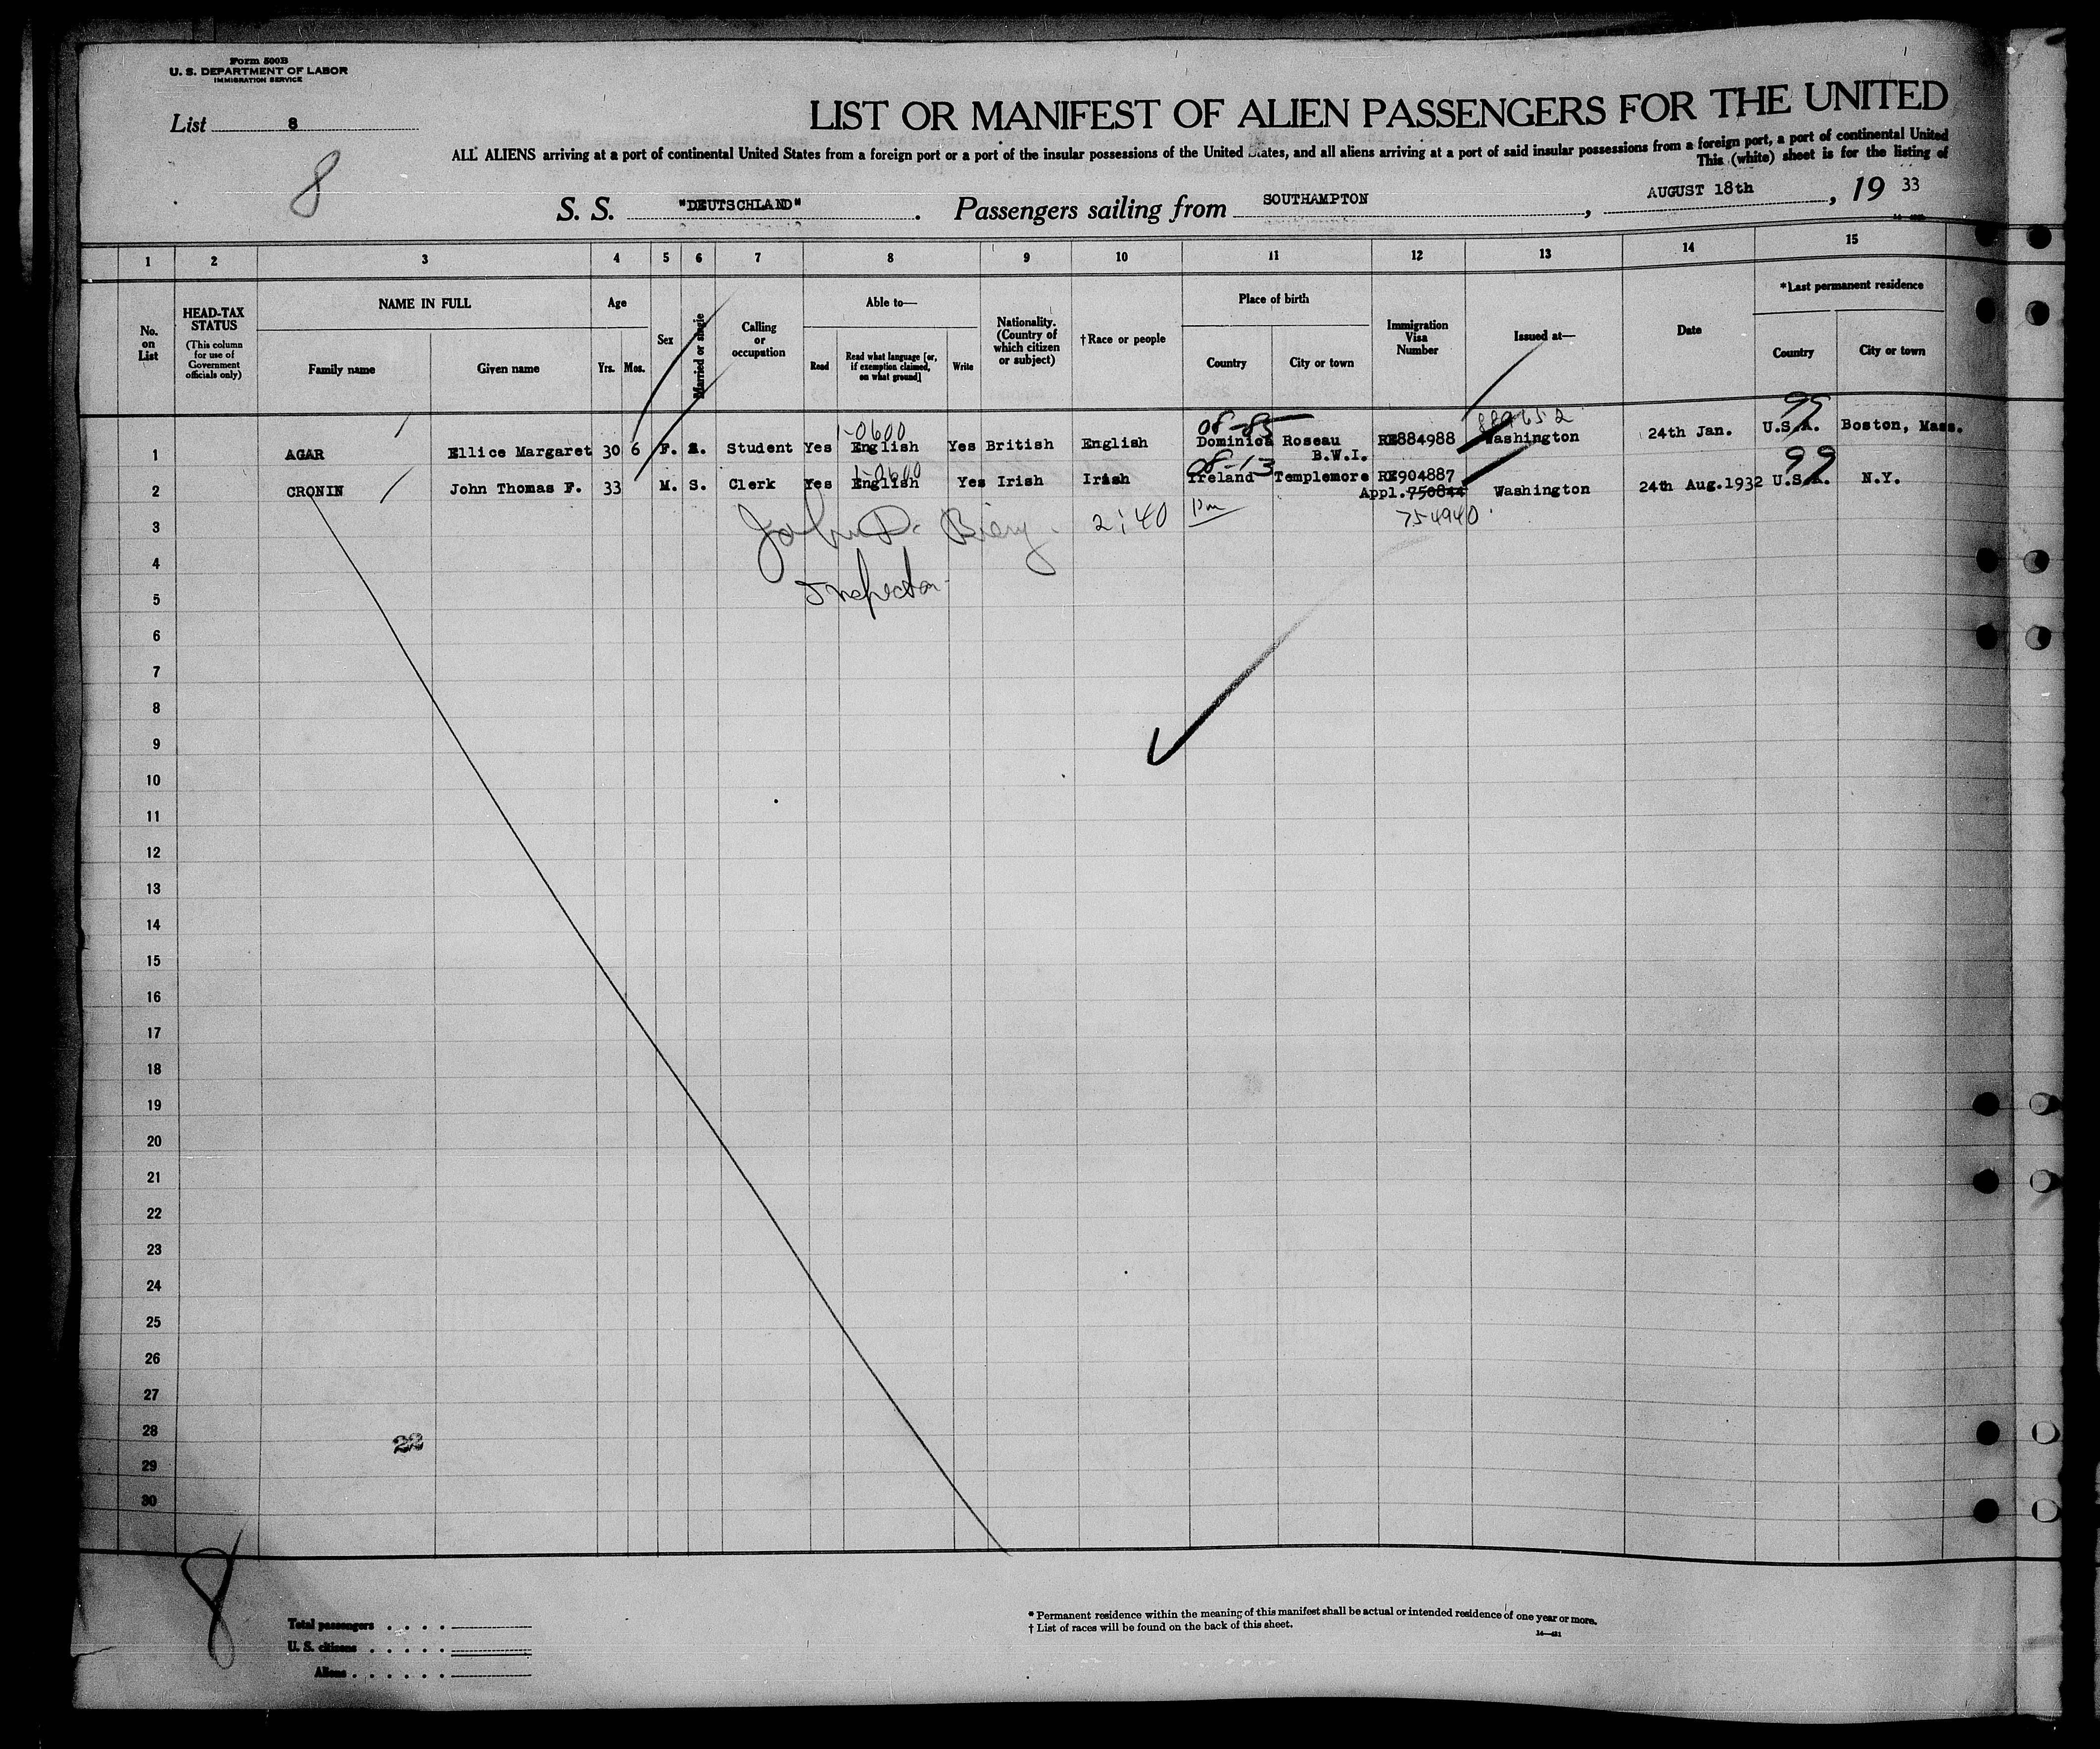 Form 500B
U. S. DEPARTMENT OF LABOR
IMMIGRATION SERVICE
List 8
8
LIST OR MANIFEST OF ALIEN PASSENGERS FOR THE UNITED
ALL ALIENS arriving at a port of continental United States from a foreign port or a port of the insular possessions of the United States, and all aliens arriving at a port of said insular possessions from a foreign port, a port of continental United
This (white) sheet is for the listing of
S. S. "DEUTSCHLAND". Passengers sailing from SOUTHAMPTON, AUGUST 18th, 19 33
1 2 3 4 5 6 7 8 9 10 11 12 13 14 15
No. on List
HEAD-TAX STATUS
(This column for use of Government officials only)
NAME IN FULL
Family name Given name
Age
Yrs. Mos.
Sex
Married or single
Calling or occupation
Able to—
Read
Read what language [or, if exemption claimed, on what ground]
Write
Nationality. (Country of which citizen or subject)
†Race or people
Place of birth
Country City or town
Immigration Visa Number
Issued at—
Date
*Last permanent residence
Country City or town
08-85 889652 99
1-0600
1 AGAR Ellice Margaret 30 6 F. S. Student Yes English Yes British English Dominica Roseau RE884988 Washington 24th Jan. U.S.A. Boston, Mass.
B.W.I.
1-0600 08-13 99
2 CRONIN John Thomas F. 33 M. S. Clerk Yes English Yes Irish Irish Ireland Templemore RE904887 Washington 24th Aug.1932 U.S.A. N.Y.
Appl.750844
3 John D. Biery 2:40 pm 754940
4
Inspector
5
6
7
8
9
10
11
12
13
14
15
16
17
18
19
20
21
22
23
24
25
26
27
28
22
29
30
8
Total passengers
U. S. citizens
Aliens
* Permanent residence within the meaning of this manifest shall be actual or intended residence of one year or more.
† List of races will be found on the back of this sheet.